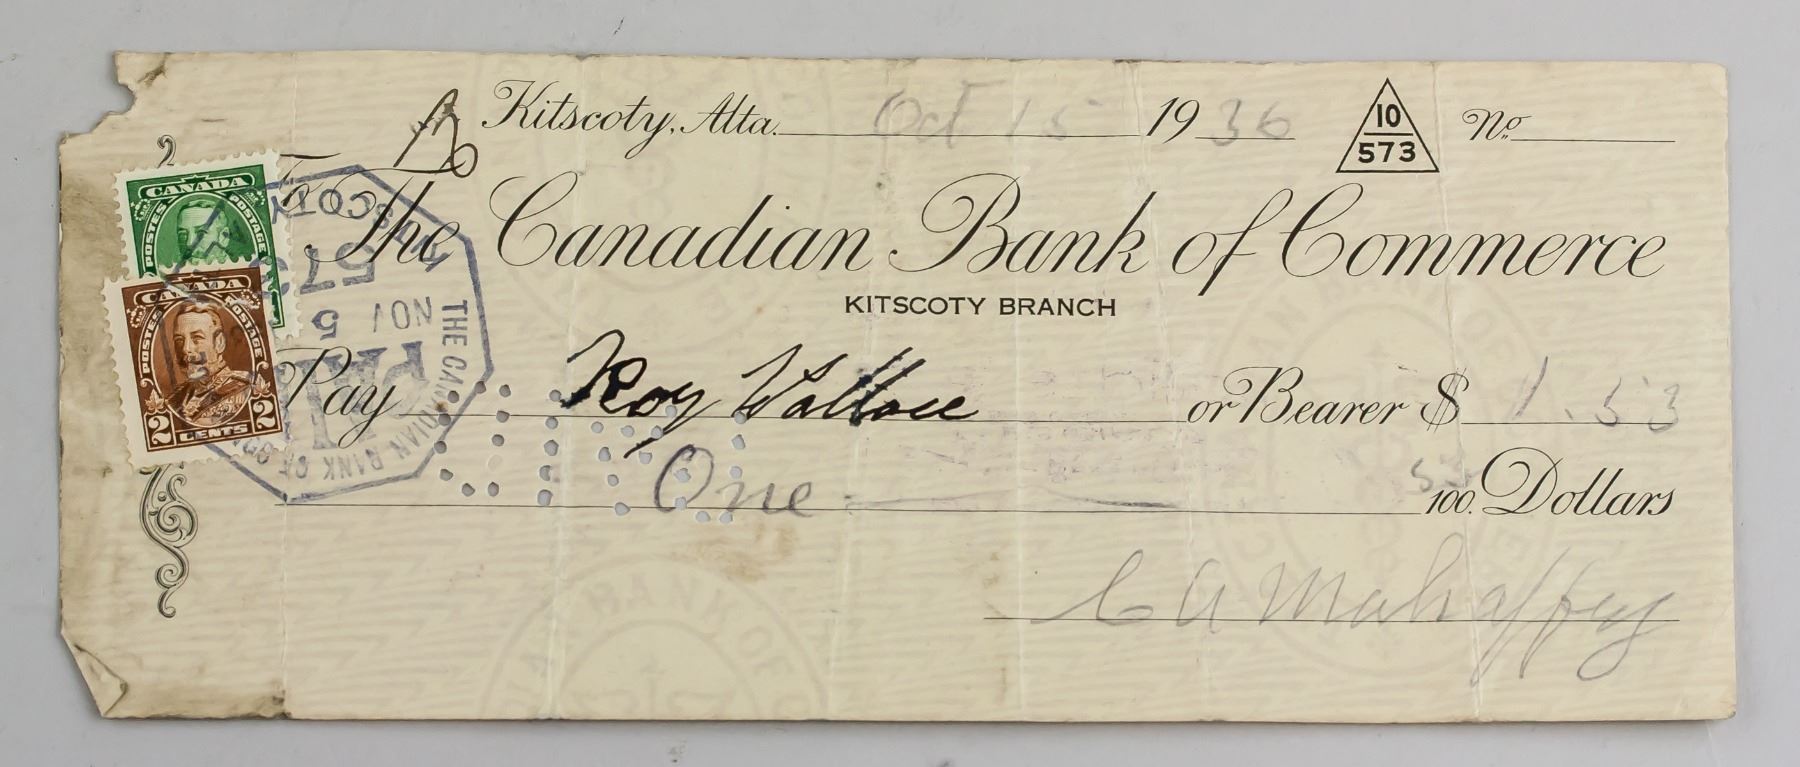 Kitscoty, Alta. Oct 15 1936 10 573 No.
To The Canadian Bank of Commerce
KITSCOTY BRANCH
Pay Roy Wallace or Bearer $ 1.53
One 53 100. Dollars
C A Mahaffey
CANADA
POSTES POSTAGE
CANADA
POSTES POSTAGE
2 CENTS 2
KITSCOTY
573
NOV 5
PAID
THE CANADIAN BANK OF